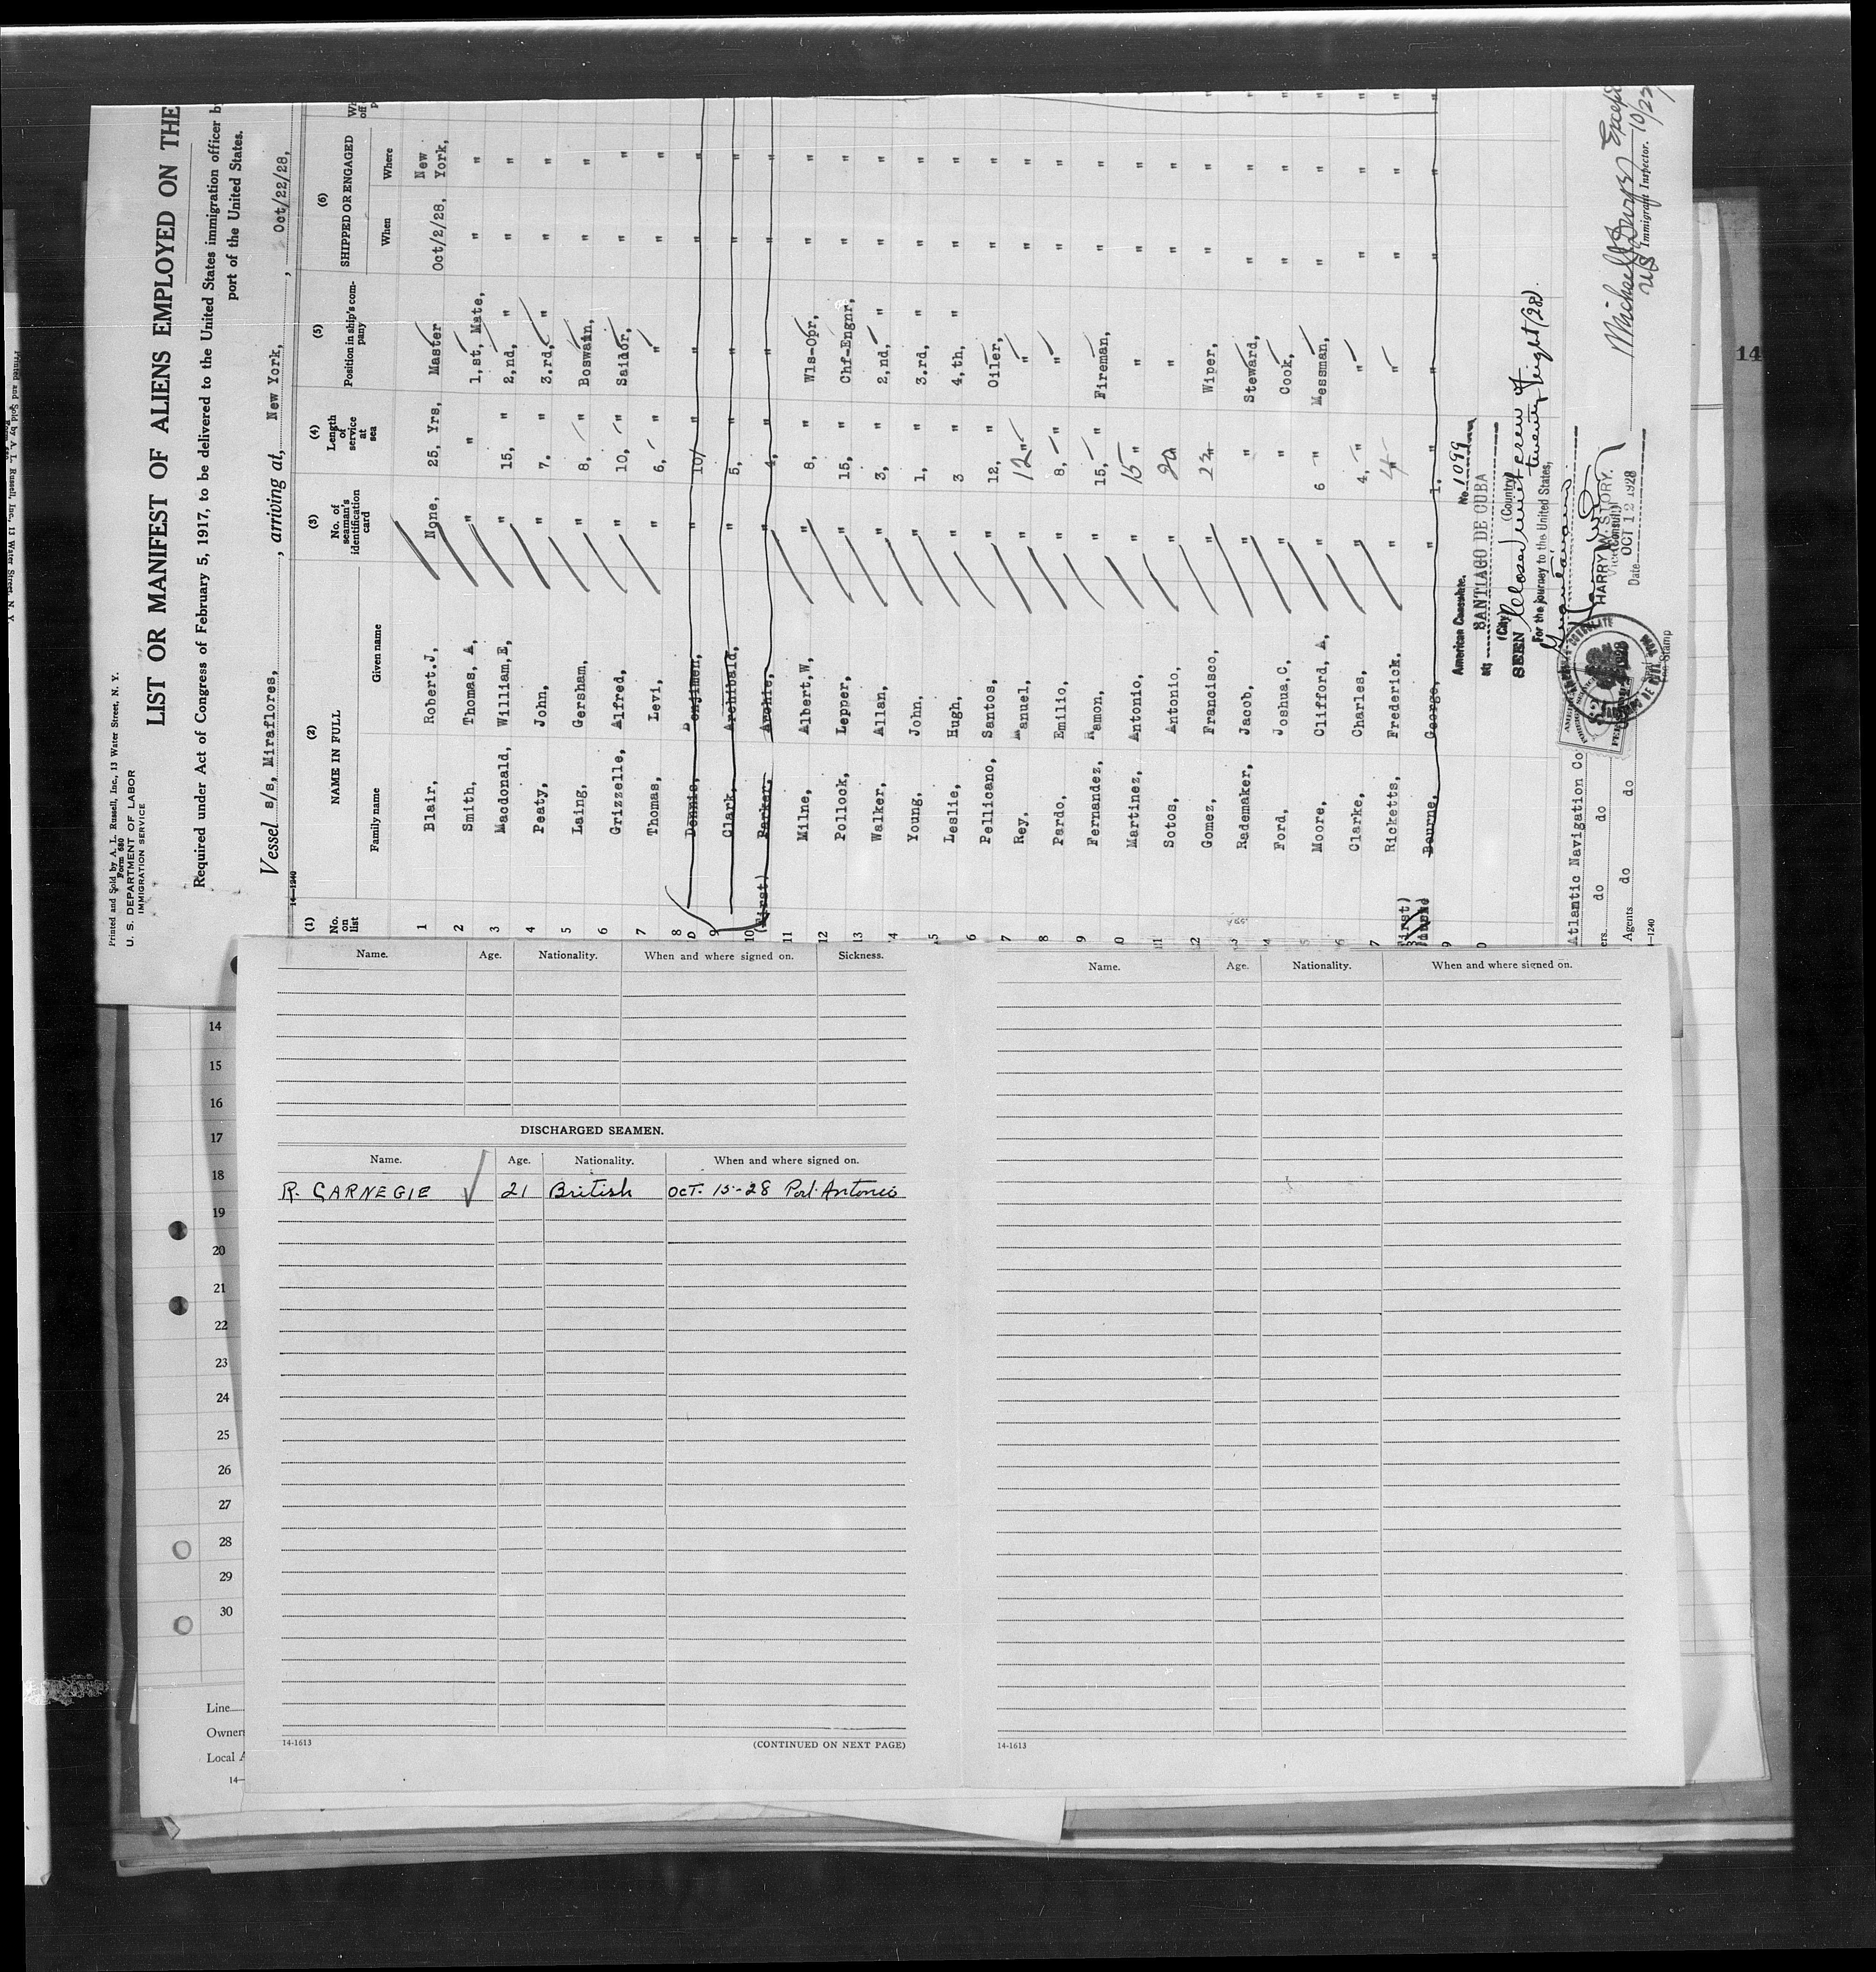 Printed and Sold by A. L. Russell, Inc., 13 Water Street, N. Y.
Form 680
U. S. DEPARTMENT OF LABOR
IMMIGRATION SERVICE
LIST OR MANIFEST OF ALIENS EMPLOYED ON THE
Required under Act of Congress of February 5, 1917, to be delivered to the United States immigration officer b
port of the United States.
Vessel s/s, Miraflores, , arriving at, New York, , Oct/22/28,
14—1240
(1) (2) (3) (4) (5) (6)
No. on list NAME IN FULL No. of seaman's identification card Length of service at sea Position in ship's company SHIPPED OR ENGAGED
Family name Given name When Where
1 Blair, Robert.J, None, 25, Yrs, Master Oct/2/28, New York,
2 Smith, Thomas, A, " " 1,st, Mate, " "
3 Macdonald, William,E, " 15, " 2,nd, " " "
4 Peaty, John, " 7. " 3.rd, " " "
5 Laing, Gersham, " 8, " Boswain, " "
6 Grizzelle, Alfred, " 10, " Sailor, " "
7 Thomas, Levi, " 6, " " " "
8 Dennis, Benjimen, " 10/ " " " "
9 Clark, Archibald, " 5, " " " "
10 Parker, Archie, " 4, " " " "
(First)
11 Milne, Albert,W, " 8, " Wls-Opr, " "
12 Pollock, Lepper, " 15, " Chf-Engnr, " "
13 Walker, Allan, " 3, " 2,nd, " " "
14 Young, John, " 1, " 3.rd, " " "
5 Leslie, Hugh, " 3 " 4,th, " " "
6 Pellicano, Santos, " 12, " Oiler, " "
7 Rey, Manuel, " 12 " " " "
8 Pardo, Emilio, " 8, " " " "
9 Fernandez, Ramon, " 15, " Fireman, " "
0 Martinez, Antonio, " 15 " " " "
1 Sotos, Antonio, " 20 " " "
2 Gomez, Francisco, " 23 " Wiper, " "
3 Rademaker, Jacob, " " Steward, " "
4 Ford, Joshua,C, " " Cook, " "
5 Moore, Clifford, A, " 6 " Messman, " "
6 Clarke, Charles, " 4, " " " "
7 Ricketts, Frederick. " 4 " " "
Bourne, George, " 1, " " " "
First)
9
0
American Consulate. No. 1099
at SANTIAGO DE CUBA
(City) (Country)
SEEN
twenty eight (28).
For the journey to the United States,
HARRY W. STORY.
Vice Consul
Date OCT 12 1928
Immigrant Inspector.
Except
10/23
Atlantic Navigation Co
ers. do do
Agents do do do
14—1240
Name. Age. Nationality. When and where signed on. Sickness.
DISCHARGED SEAMEN.
Name. Age. Nationality. When and where signed on.
R. CARNEGIE 21 British OCT. 15-28 Port Antonio
14-1613
(CONTINUED ON NEXT PAGE)
Name. Age. Nationality. When and where signed on.
14-1613
14
15
16
17
18
19
20
21
22
23
24
25
26
27
28
29
30
Line
Owner
Local A
14—
14